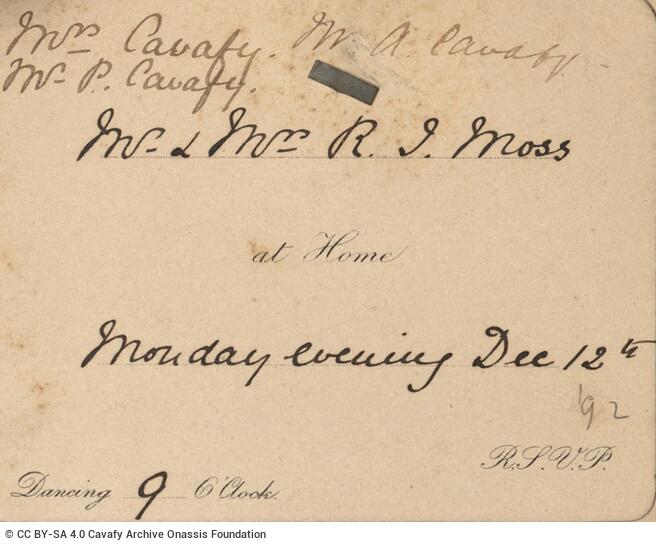 Mrs Cavafy. Mr A. Cavafy.
Mr P. Cavafy.
Mr & Mrs R. J. Moss
at Home
Monday evening Dec 12th
'92
R.S.V.P.
Dancing 9 O'Clock.
© CC BY-SA 4.0 Cavafy Archive Onassis Foundation